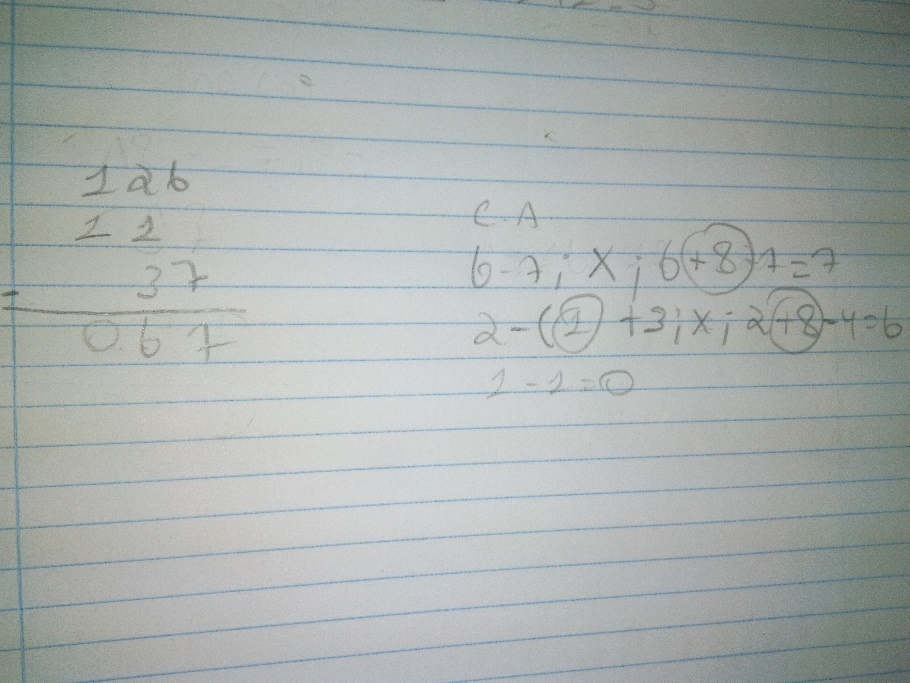 126
1 1
- 37
067
C.A.
6-7; X; 6+8-7=7
2-(1)+3; X; 2+8-4=6
1-1=0